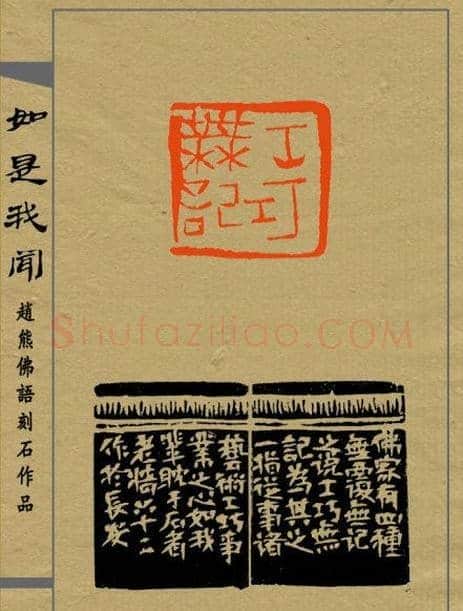 如是我聞
趙熊佛語刻石作品
工巧
無記
Shufaziliao.COM
佛家有四種
無覆無記
之说工巧無
記為其之
一指從事诸
藝術工巧事
業之心如我
輩耽于石者
老六十二
作於長安